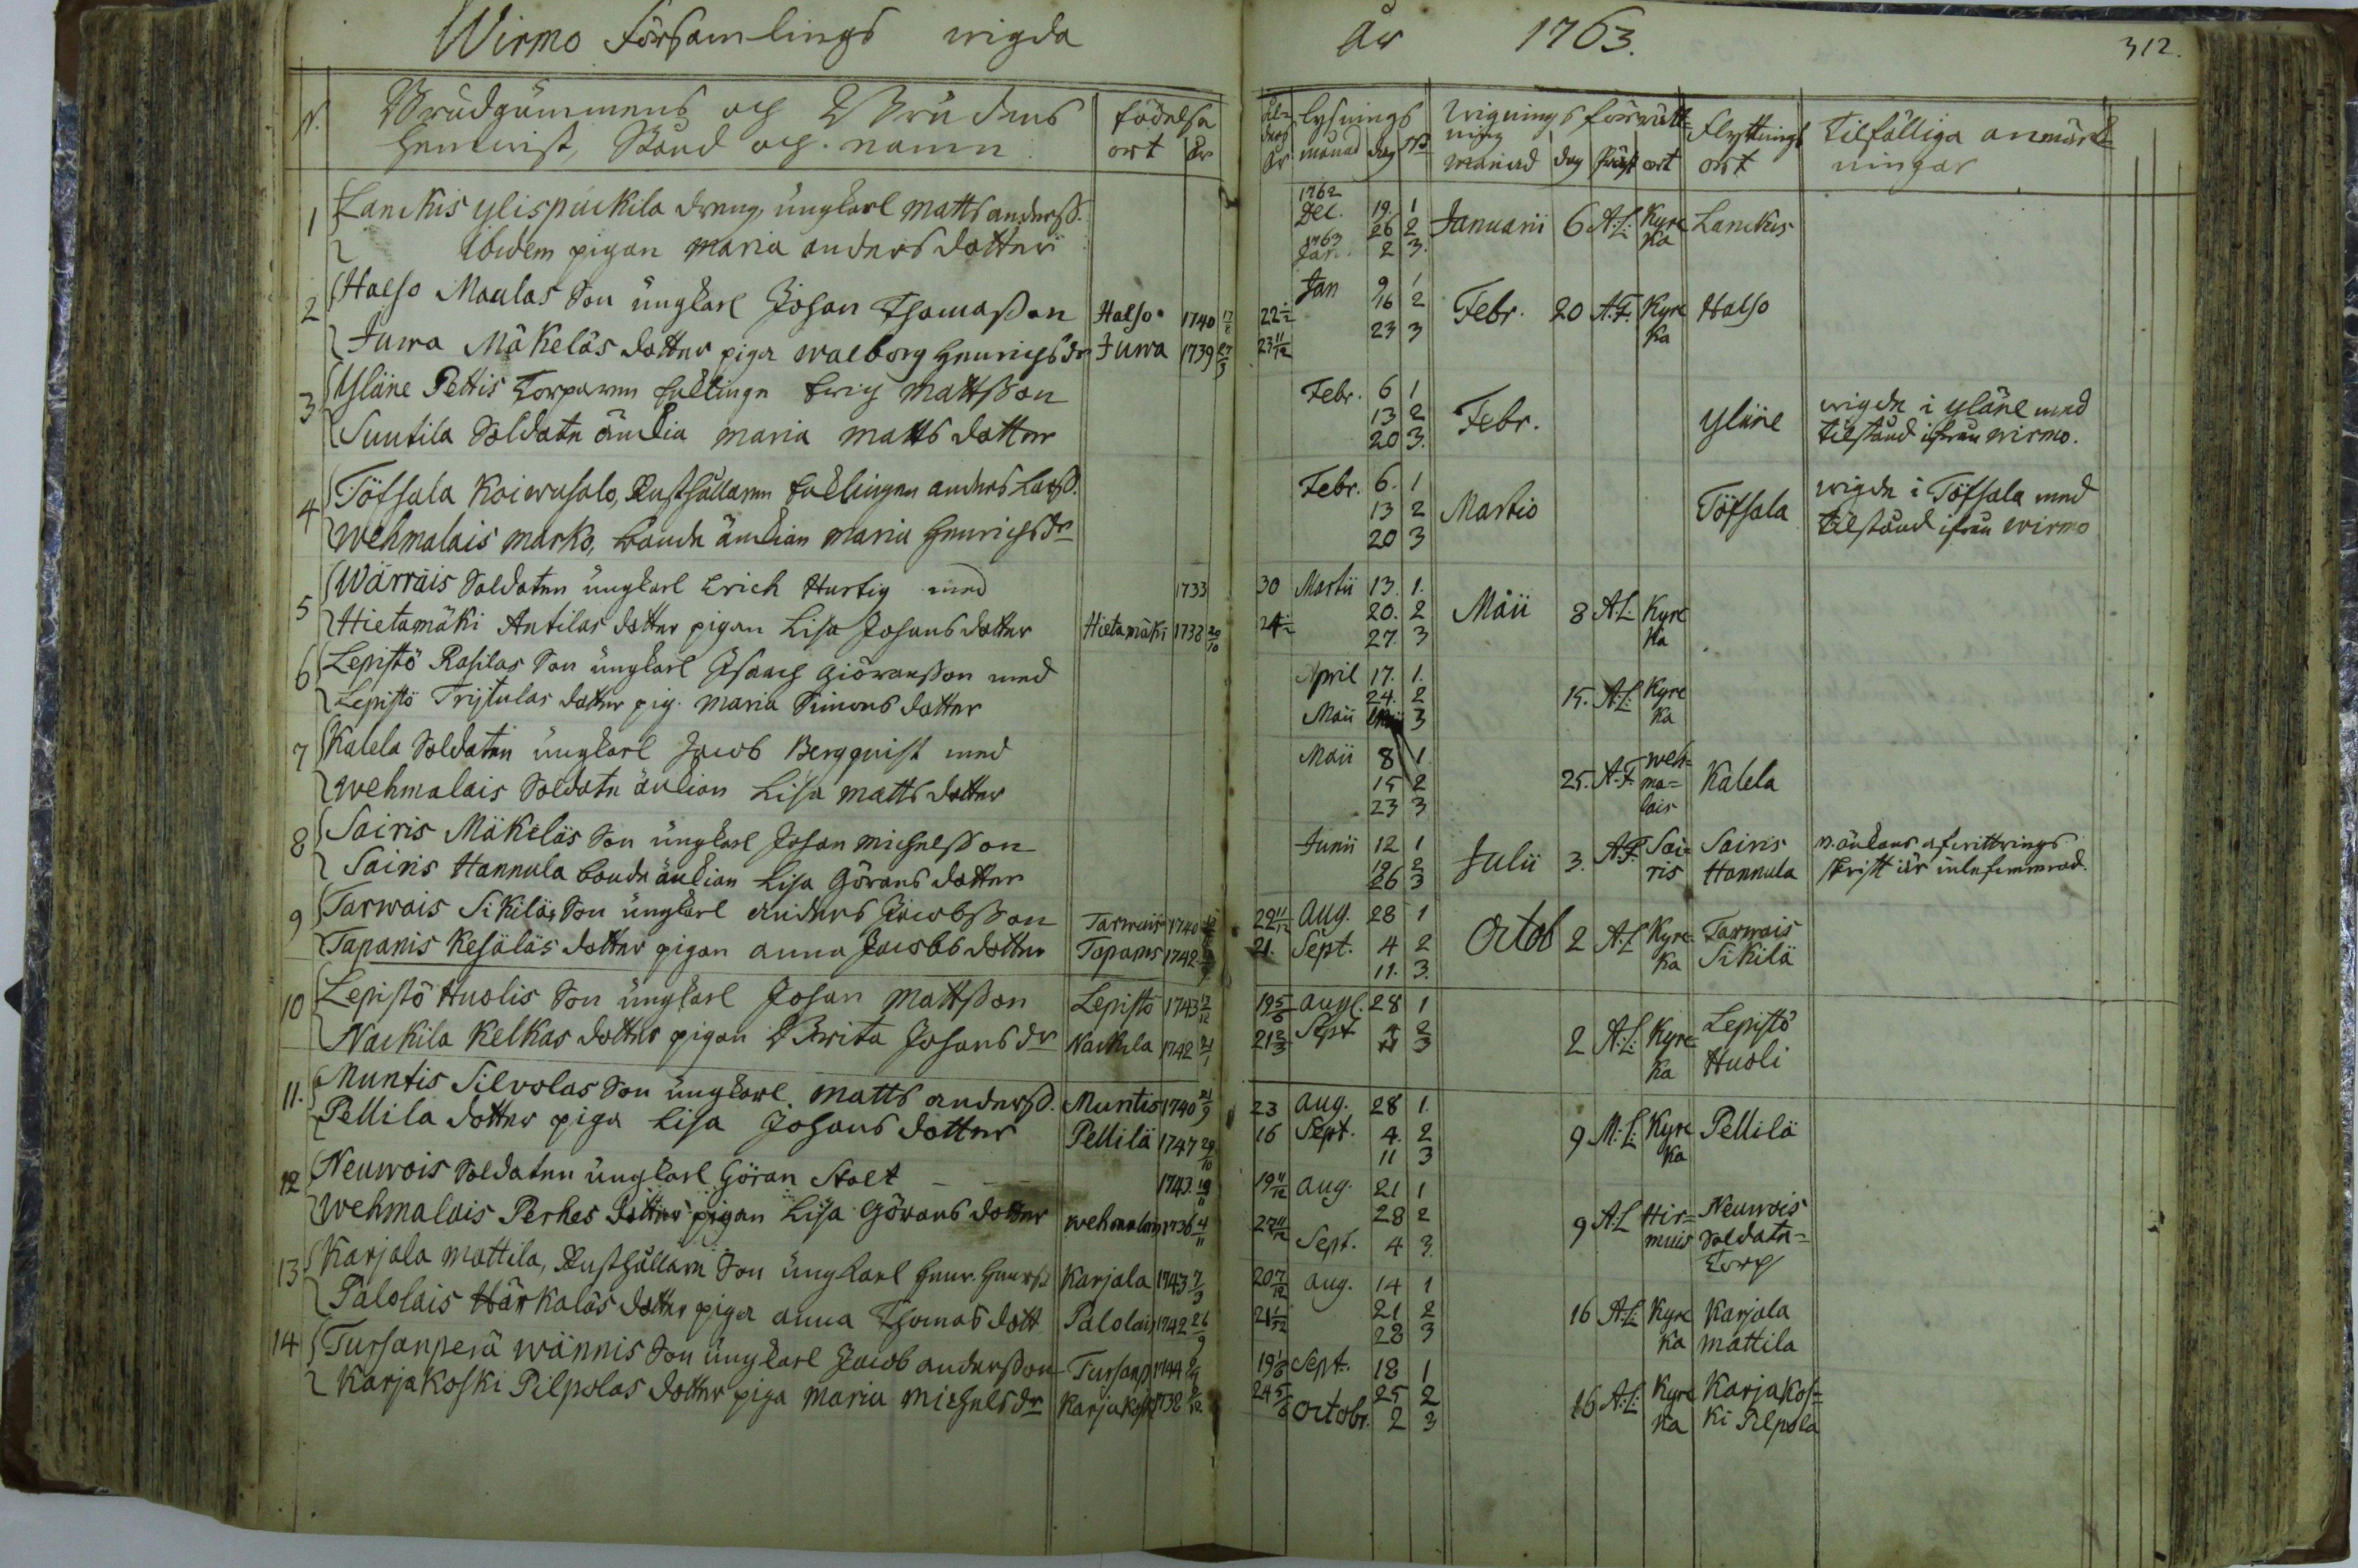 Wirmo Församlings wigda
År 1763.
312.
N. Brudgummens och Brudens
hemwist, Stånd och namn
födelse
ort år
ålders år
lysnings
månad dag
wignings förrättning
månad dag präst ort
flyttnings
ort
Tilfälliga anmärkningar
1 Lanckis ylispäckila dreng, ungkarl Matts anderss.
ibidem pigan Maria anders dotter
1762 Dec. 19. 1
26 2
1763 Jan. 2 3.
Januarii 6 A.L. Kyrcka Lanckis
2 Halso Maulas Son ungkarl Johan Thomasson Halso 1740 17/8
Juwa Mäkeläs dotter piga Walborg Henrichs dr Juwa 1739 27/3
22 1/2 Jan 9 1
23 11/12 16 2
23 3
Febr. 20 A.F. Kyrcka Halso
3 Yläne Pettis Torparen Enklingn Eric Mattsson
Suutila Soldate änckia Maria Matts dotter
Febr. 6 1
13 2
20 3.
Febr. Yläne
wigde i Yläne med
tilstånd ifrån Wirmo.
4 Töfsala Koiwusalo, Rusthållaren Enklingen Anders Larss.
Wehmalais Marko, bonde änckian Maria Henrichs dr
Febr. 6. 1
13 2
20 3
Martio Töfsala
wigde i Töfsala med
tilstånd ifrån Wirmo
5 Wärräis Soldaten ungkarl Erich Hurtig med 1733
Hietamäki Antilas dotter pigan Lisa Johans dotter Hietamäki 1738 20/10
30 Martii 13. 1.
24 1/2 20. 2
27. 3
Maii 8 A.L. Kyrcka
6 Lepistö Rasilas Son ungkarl Isaach Giöransson med
Lepistö Trystulas dotter pig. Maria Simons dotter
April 17. 1.
24. 2
Maii 3
15. A.L. Kyrcka
7 Kalela Soldaten ungkarl Jacob Bergquist med
Wehmalais Soldate änckian Lisa Matts dotter
Maii 8 1
15 2
23 3
25. A.F. Wehmalais Kalela
8 Sairis Mäkeläs Son ungkarl Johan Michelsson
Sairis Hannula bonde änckian Lisa Görans dotter
Junii 12 1
19 2
26 3
Julii 3. A.F. Sairis Sairis
Hannula
n. änkans afwittrings
skrift är inlefwererad.
9 Tarwais Sikiläs Son ungkarl Anders Jacobsson Tarwais 1740
Tapanis Kesäläs dotter pigan Anna Jacobs dotter Tapanis 1742
22 11/12 Aug. 28 1
21. Sept. 4 2
11. 3.
Octob 2 A.L. Kyrcka Tarwais
Sikilä
10 Lepistö Huolis Son ungkarl Johan Mattsson Lepistö 1743
Nackila Kelkas dotter pigan Brita Johans dr Nackila 1742 21/1
19 5/6 Aug. 28 1
21 2/3 Sept 4 2
11 3
2 A.L. Kyrcka Lepistö
Huoli
11. Muntis Silvolas Son ungkarl Matts anderss. Muntis 1740 21/9
Pellila dotter piga Lisa Johans dotter Pellilä 1747 29/10
23 Aug. 28 1.
16 Sept. 4. 2
11 3
9 M.L. Kyrcka Pellilä
12 Neuwois Soldaten ungkarl Göran Stolt 1743. 19/11
Wehmalais Perhes dotter pigan Lisa Görans dotter Wehmalais 1736 4/11
19 11/12 Aug. 21 1
27 11/12 28 2
Sept. 4 3.
9 A.L. Hirmuis Neuwois
Soldate-
Torp
13 Karjala Mattila, Rusthållare Son ungkarl Henr. Henrss. Karjala 1743 7/3
Palolais Härkäläs dotter piga Anna Thomas dott Palolais 1742 26/9
20 7/12 Aug. 14 1
21 1/12 21 2
28 3
16 A.L. Kyrcka Karjala
Mattila
14 Tursanperä Wännis Son ungkarl Jacob Andersson Tursanp. 1744
Karjakoski Pilpolas dotter piga Maria Michels dr Karjakoski 1738
19 1/6 Sept. 18 1
24 5/6 25 2
Octobr. 2 3
16 A.L. Kyrcka Karjakoski Pilpola